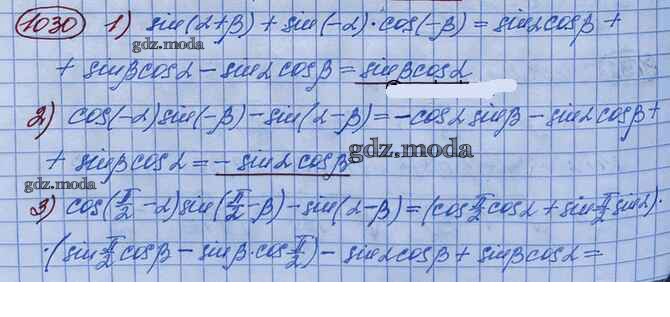 1030 1) sin(α+β) + sin(-α)·cos(-β) = sinα cosβ +
gdz.moda
+ sinβ cosα - sinα cosβ = sinβ cosα
2) cos(-α) sin(-β) - sin(α-β) = -cosα sinβ - sinα cosβ +
+ sinβ cosα = - sinα cosβ
gdz.moda
gdz.moda
3) cos(π/2 - α) sin(π/2 - β) - sin(α-β) = (cos π/2 cosα + sin π/2 sinα)·
·(sin π/2 cosβ - sinβ·cos π/2) - sinα cosβ + sinβ cosα =